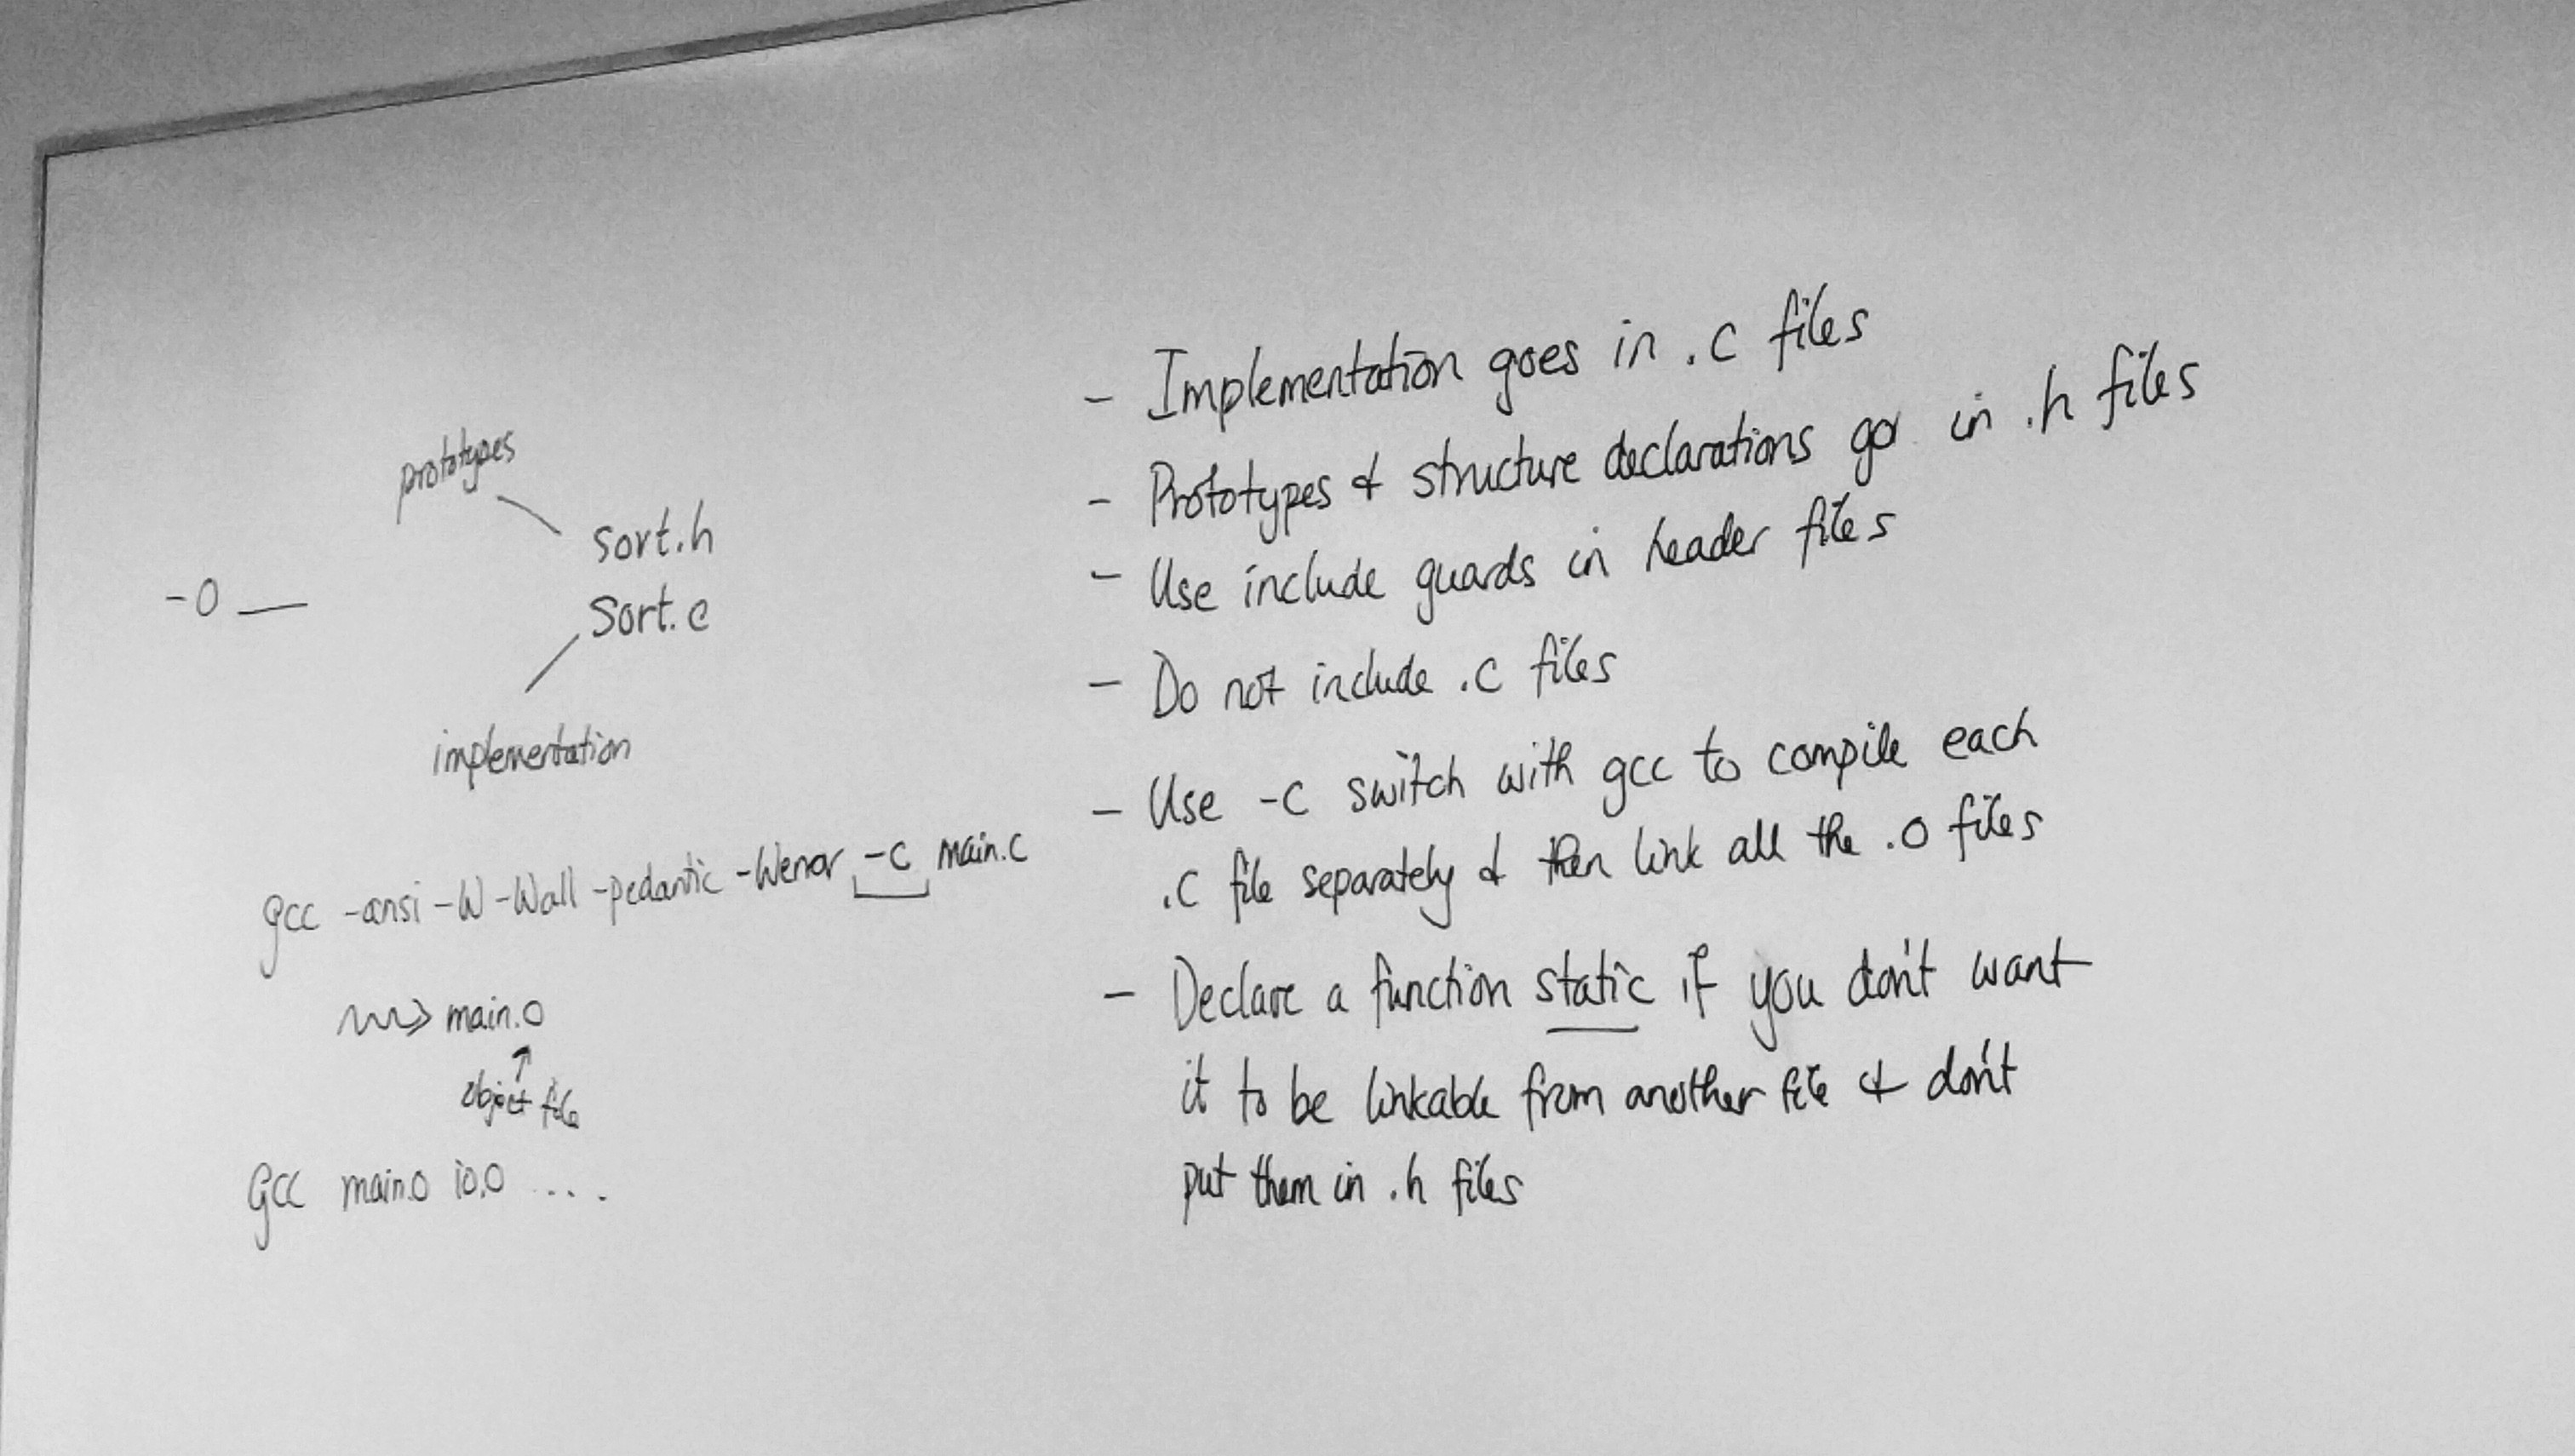 prototypes
sort.h
-o __
sort.c
implementation
gcc -ansi -W -Wall -pedantic -Werror -c main.c
main.o
object file
gcc main.o io.o ....
- Implementation goes in .c files
- Prototypes & structure declarations go in .h files
- Use include guards in header files
- Do not include .c files
- Use -c switch with gcc to compile each
.c file separately & then link all the .o files
- Declare a function static if you don't want
it to be linkable from another file & don't
put them in .h files